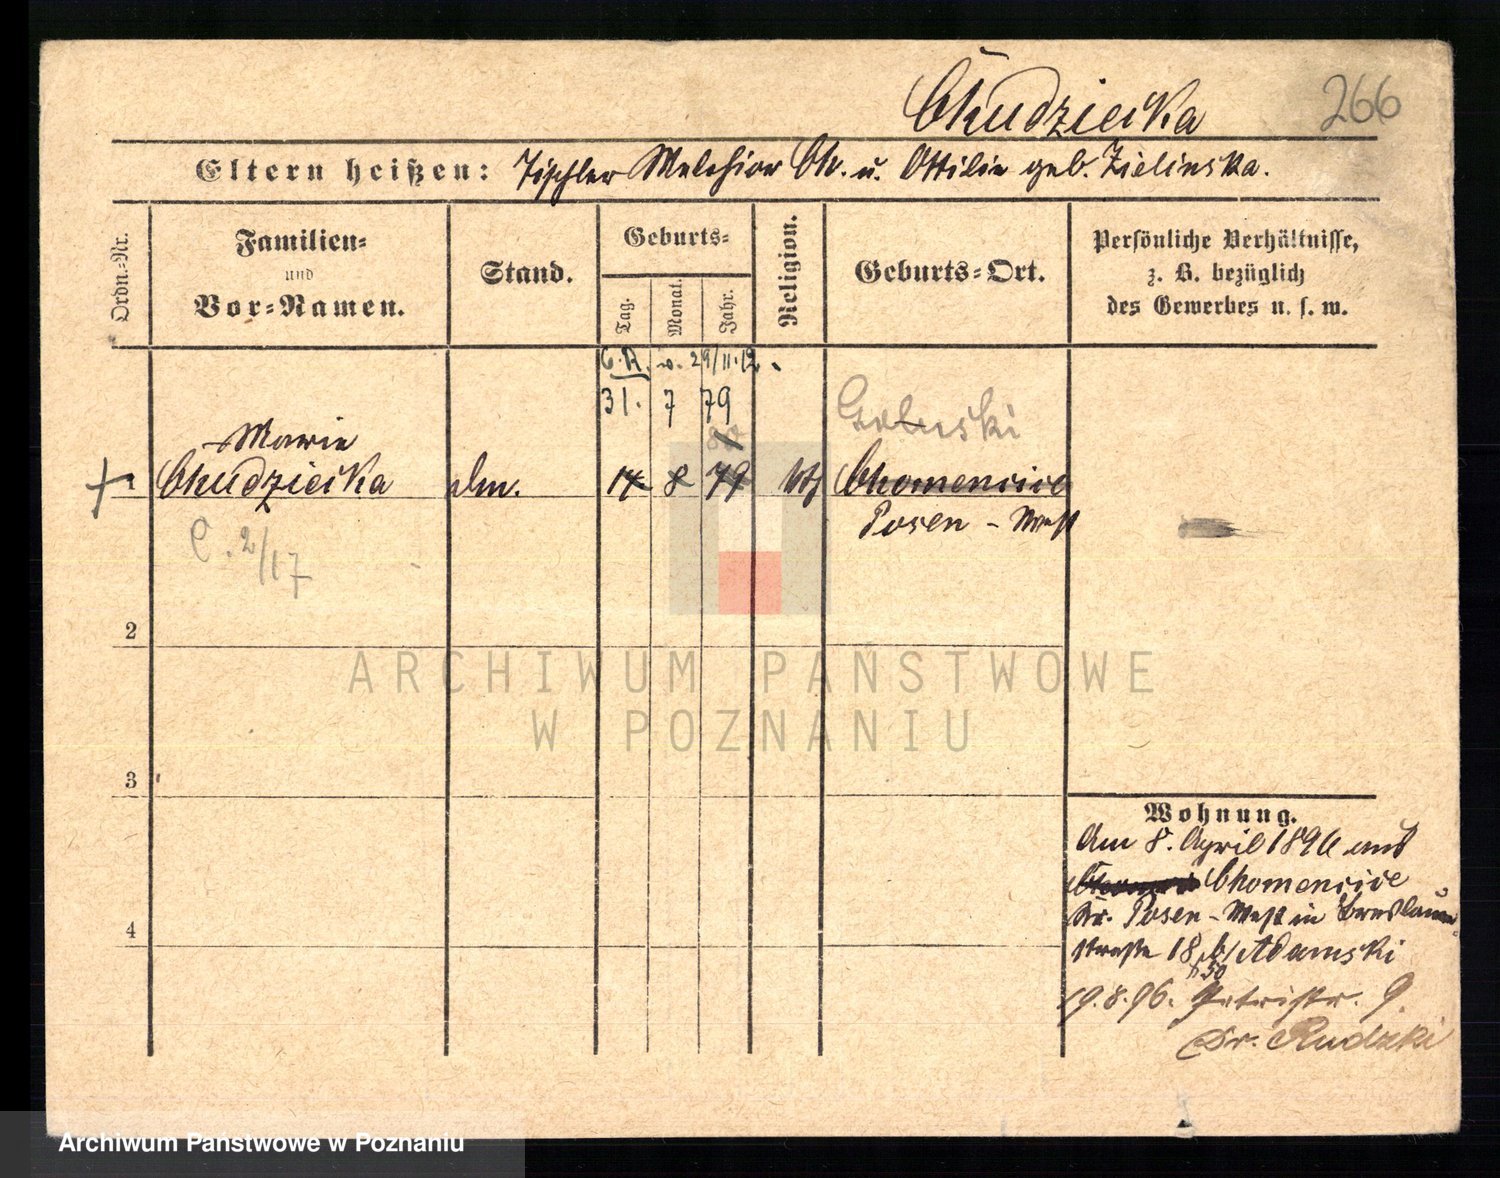 Chudzicka
266
Eltern heißen: Tischler Melchior Ch. u. Ottilie geb. Zielinska.
Ordn.-Nr.
Familien- und Vor-Namen.
Stand.
Geburts-
Tag.
Monat.
Jahr.
Religion.
Geburts-Ort.
Persönliche Verhältnisse, z. B. bezüglich des Gewerbes u. s. w.
G. R. v. 29/11.12.
31. 7 79
Goluski
80
Marie
1 Chudzicka 14 8 79 Chomencice
Posen - West
C. 2/17
2
3
4
ARCHIWUM PAŃSTWOWE
W POZNANIU
Wohnung.
Am 8. April 1896 aus
Chomencice
Kr. Posen - West in Breslauer-
strasse 18 b/ Adamski
19.8.96. Petristr. 9.
Dr. Rudzki
Archiwum Państwowe w Poznaniu